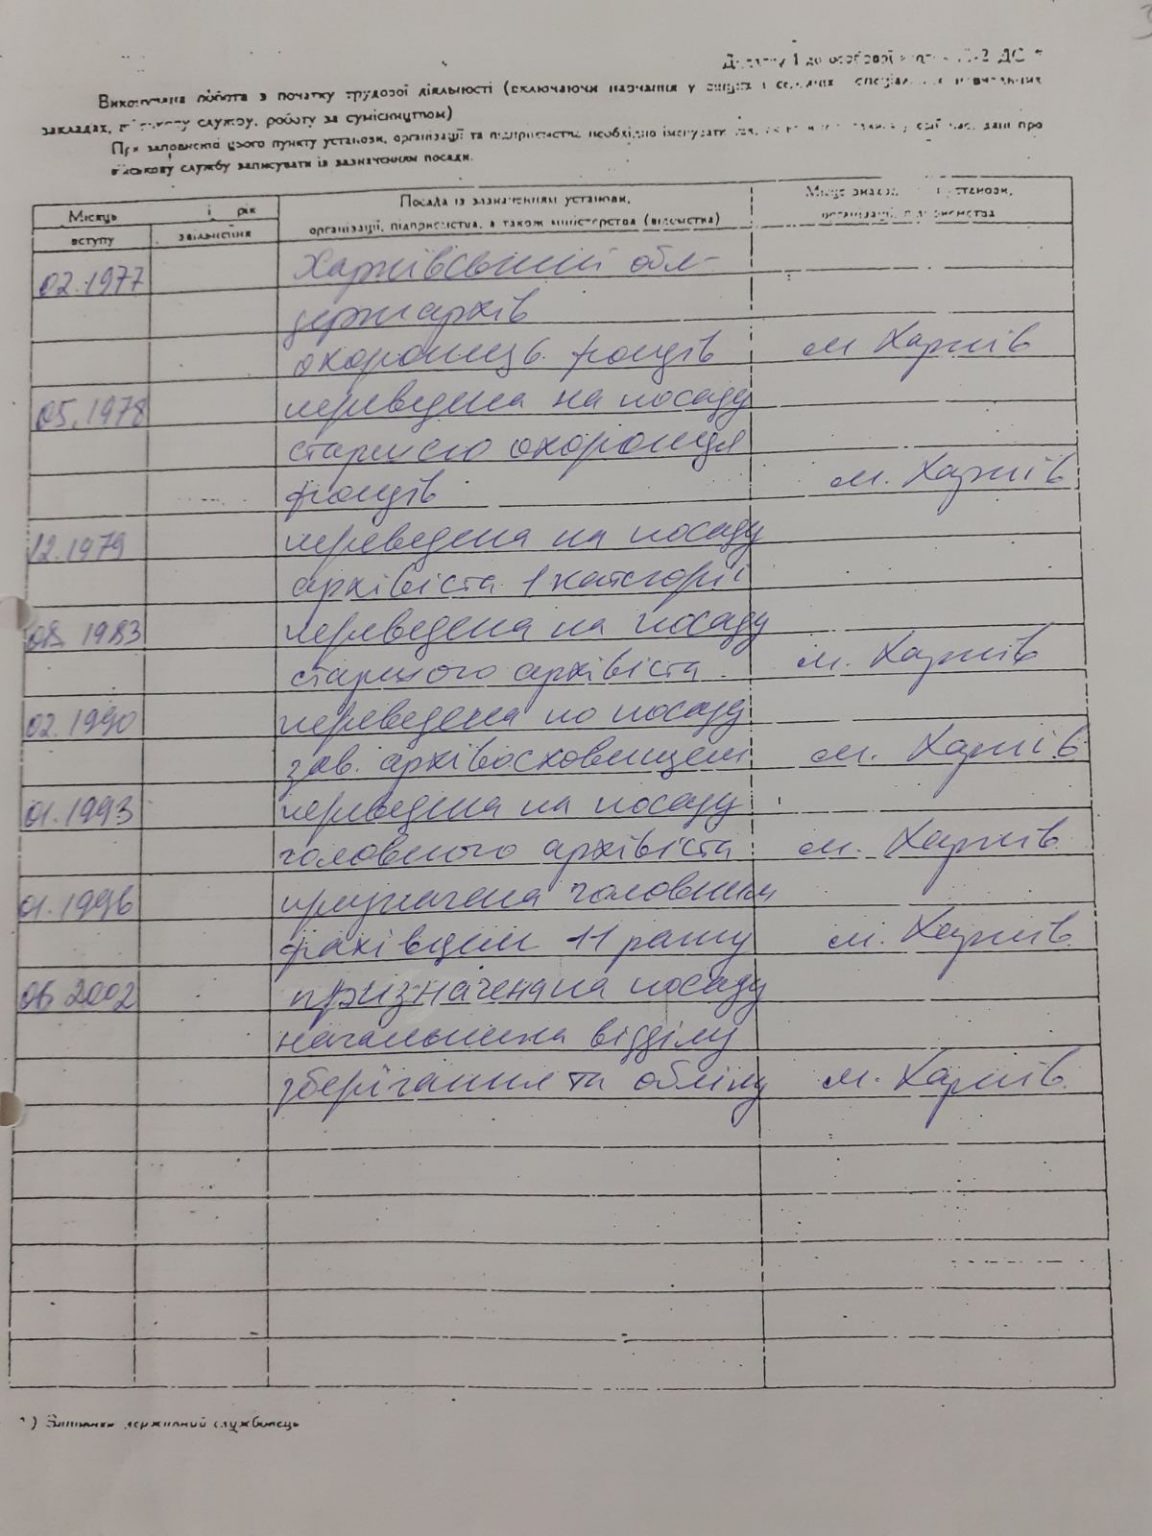 Додаток 1 до особової П-2 ДС *
Виконувана робота з початку трудової діяльності (включаючи навчання у вищих і середніх спеціальних навчальних
закладах, військову службу, роботу за сумісництвом)
При заповненні цього пункту установи, організації та підприємства необхідно іменувати так, у свій час, дані про
військову службу записувати із зазначенням посади.
Місяць і рік
вступу звільнення
Посада із зазначенням установи,
організації, підприємства, а також міністерства (відомства)
Місце знаходження установи,
організації, підприємства
02.1977 Харківський обл-
держархів
охоронець фондів м Харків
05.1978 переведена на посаду
старшого охоронця
фондів м. Харків
12.1979 переведена на посаду
архівіста 1 категорії
08 1983 переведена на посаду
старшого архівіста м. Харків
02.1990 переведена по посаду
зав. архівосховищем м. Харків
01.1993 переведена на посаду
головного архівіста м. Харків
01.1996 призначена головним
фахівцем 11 рангу м. Харків
06 2002 призначена на посаду
начальника відділу
зберігання та обліку м. Харків
*) Заповнює державний службовець